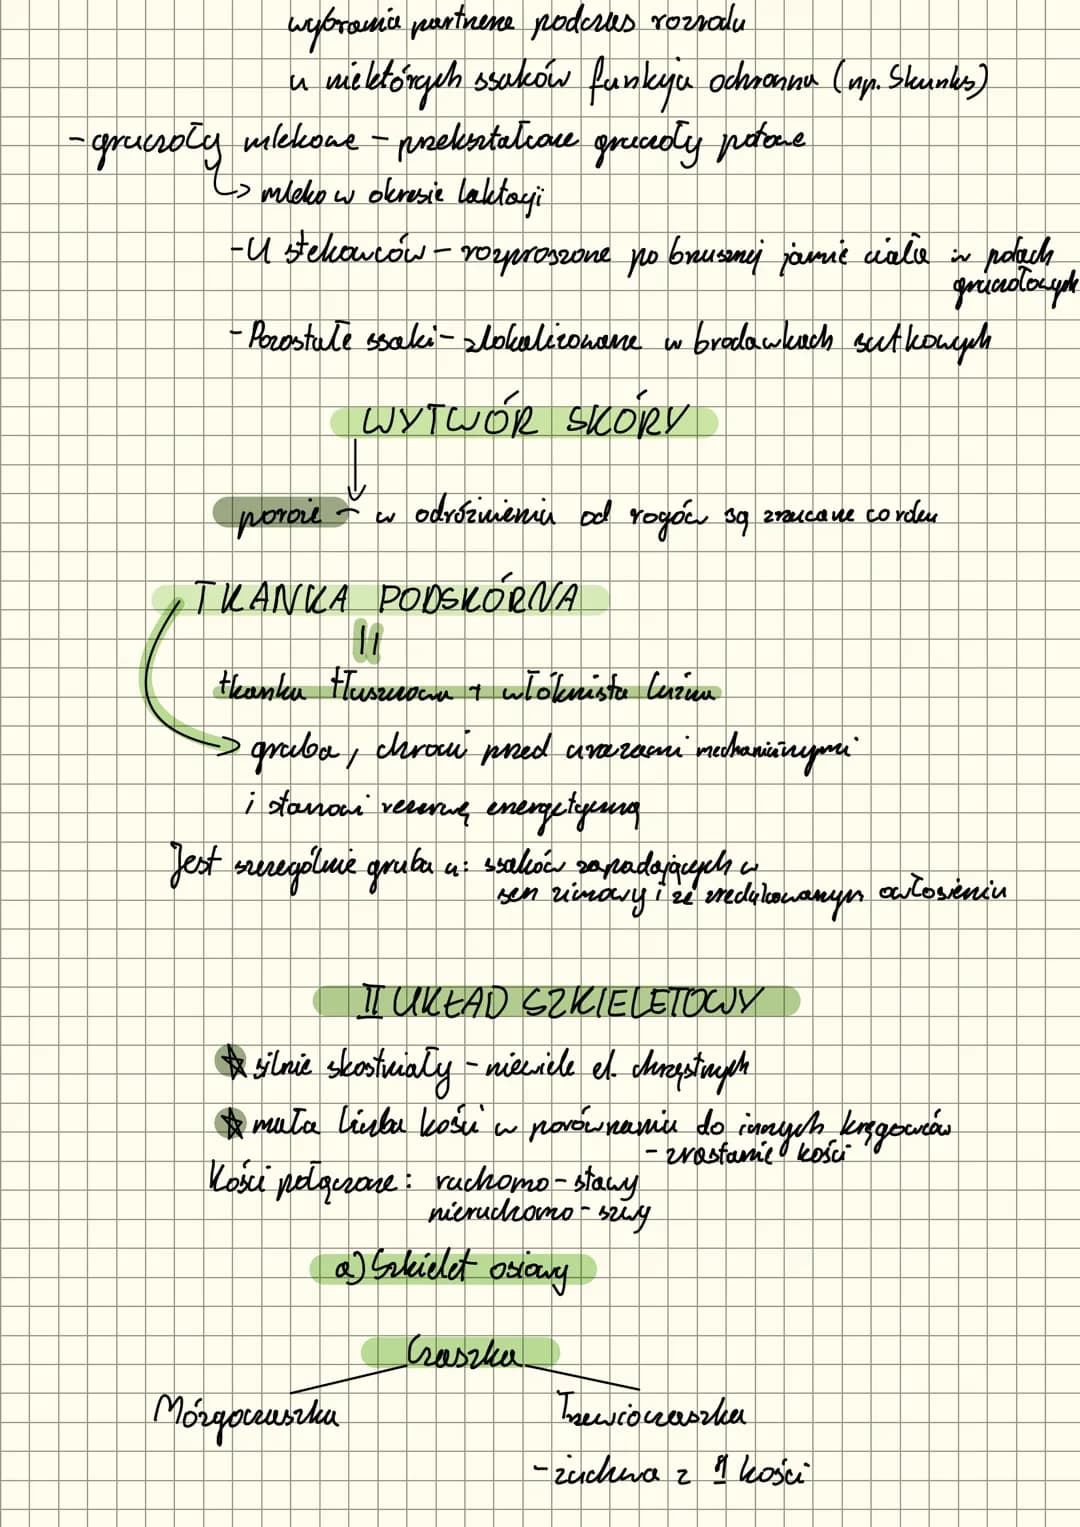 wybrania partnera podczas rozrodu
u niektórych ssaków funkcja ochronna (np. Skunks)
- gruczoły mlekowe - przekształcone gruczoły potowe
↳ mleko w okresie laktacji
- U stekowców - rozproszone po brzusznej jamie ciała w polach gruczołowych
- Pozostałe ssaki - zlokalizowane w brodawkach sutkowych
WYTWÓR SKÓRY
poroże - w odróżnieniu od rogów są zrzucane co roku
TKANKA PODSKÓRNA
=
tkanka tłuszczowa + włóknista luźna
→ gruba, chroni przed urazami mechanicznymi
i stanowi rezerwę energetyczną
Jest szczególnie gruba u: ssaków zapadających w
sen zimowy i ze zredukowanym owłosieniu
II UKŁAD SZKIELETOWY
☆ silnie skostniały - niewiele el. chrzęstnych
☆ mała liczba kości w porównaniu do innych kręgowców
- zrastanie kości
Kości połączone: ruchomo - stawy
nieruchomo - szwy
a) Szkielet osiowy
Czaszka
Mózgoczaszka Trzewioczaszka
- żuchwa z 1 kości